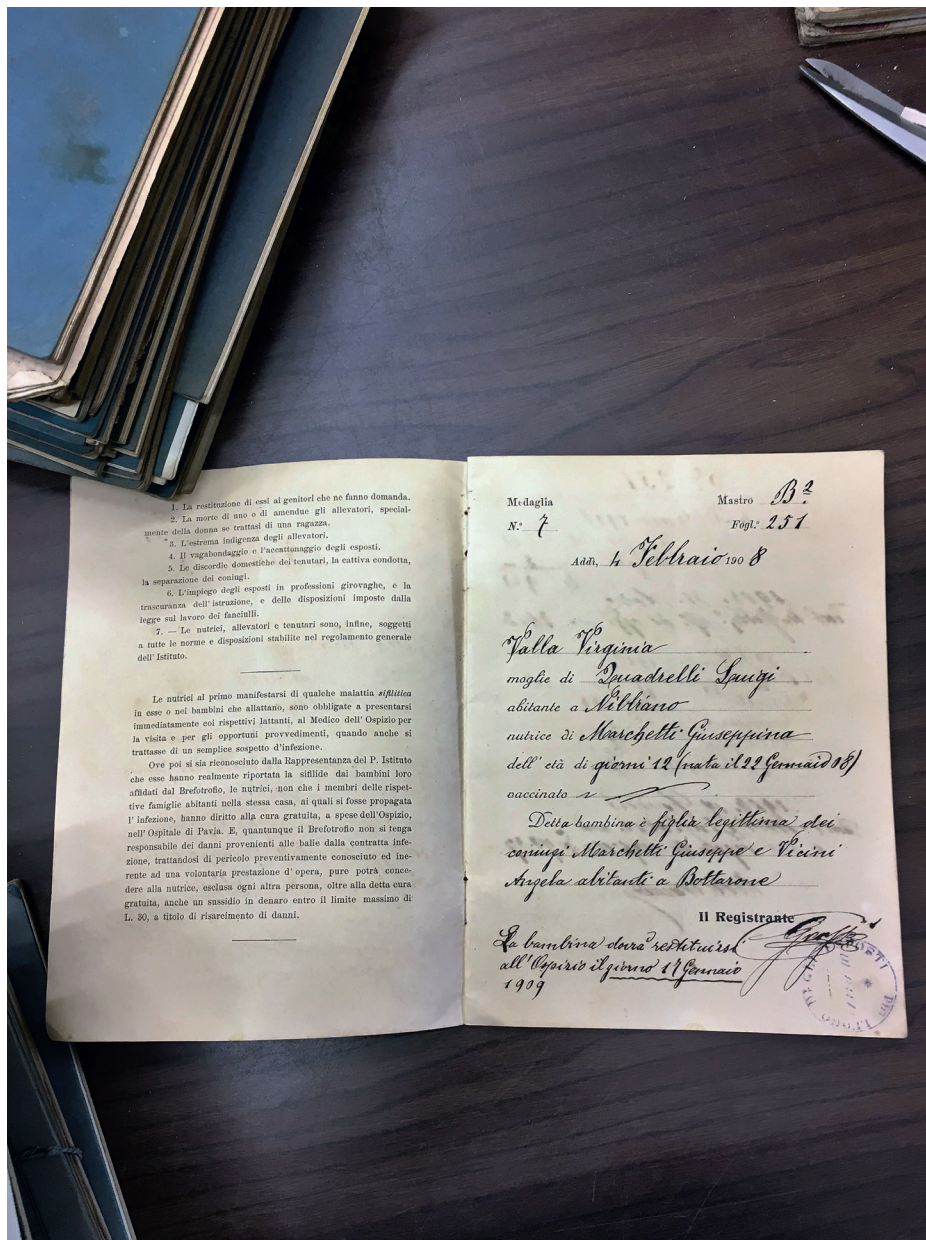 1. La restituzione di essi ai genitori che ne fanno domanda.
2. La morte di uno o di amendue gli allevatori, special-
mente della donna se trattasi di una ragazza.
3. L'estrema indigenza degli allevatori.
4. Il vagabondaggio e l'accattonaggio degli esposti.
5. Le discordie domestiche dei tenutari, la cattiva condotta,
la separazione dei coniugi.
6. L'impiego degli esposti in professioni girovaghe, e la
trascuranza dell'istruzione, e delle disposizioni imposte dalla
legge sul lavoro dei fanciulli.
7. — Le nutrici, allevatori e tenutari sono, infine, soggetti
a tutte le norme e disposizioni stabilite nel regolamento generale
dell'Istituto.
Le nutrici al primo manifestarsi di qualche malattia sifilitica
in esse o nei bambini che allattano, sono obbligate a presentarsi
immediatamente coi rispettivi lattanti, al Medico dell'Ospizio per
la visita e per gli opportuni provvedimenti, quando anche si
trattasse di un semplice sospetto d'infezione.
Ove poi si sia riconosciuto dalla Rappresentanza del P. Istituto
che esse hanno realmente riportata la sifilide dai bambini loro
affidati dal Brefotrofio, le nutrici, non che i membri delle rispet-
tive famiglie abitanti nella stessa casa, ai quali si fosse propagata
l'infezione, hanno diritto alla cura gratuita, a spese dell'Ospizio,
nell'Ospitale di Pavia. E, quantunque il Brefotrofio non si tenga
responsabile dei danni provenienti alle balie dalla contratta infe-
zione, trattandosi di pericolo preventivamente conosciuto ed ine-
rente ad una volontaria prestazione d'opera, pure potrà conce-
dere alla nutrice, esclusa ogni altra persona, oltre alla detta cura
gratuita, anche un sussidio in denaro entro il limite massimo di
L. 30, a titolo di risarcimento di danni.
Medaglia Mastro B²
N.° 7 Fogl.° 251
Addì, 4 Febbraio 1908
Valla Virginia
moglie di Quadrelli Luigi
abitante a Nibbiano
nutrice di Marchetti Giuseppina
dell'età di giorni 12 (nata il 22 Gennaio 08)
vaccinato
Detta bambina è figlia legittima dei
coniugi Marchetti Giuseppe e Vicini
Angela abitanti a Bottarone
Il Registrante
La bambina dovrà restituirsi
all'Ospizio il giorno 17 Gennaio
1909
PIO LUOGO DEGLI ESPOSTI